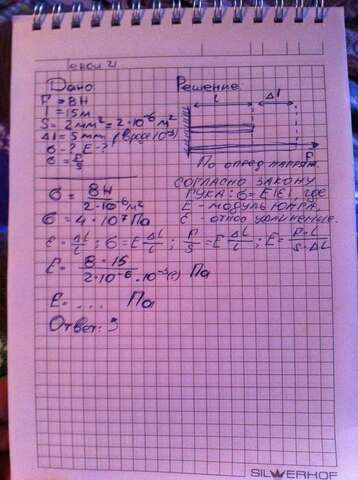 Дано
Решение:
F = 8 Н
l = 15 м
S = 2 мм² = 2·10⁻⁶ м²
Δl = 5 mm
σ - ? E - ?
σ = F/S
l Δl
F
По опред. напряж.
согласно закону
Гука: σ = E|ε|, где
E - модуль Юнга,
ε - относ удлинение.
σ = 8Н / 2·10⁻⁶ м²
σ = 4·10⁷ Па
ε = Δl/l ; σ = E Δl/l ; F/S = E Δl/l ; E = F·l / S·Δl
E = 8·15 / 2·10⁻⁶·10⁻³(?) Па
E = ... Па
Ответ:
SILWERHOF